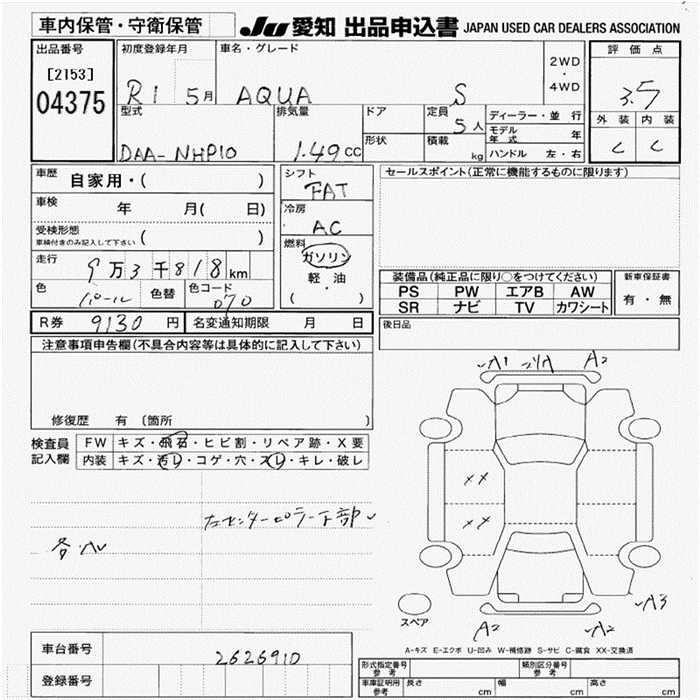 車内保管・守衛保管
JU 愛知 出品申込書 JAPAN USED CAR DEALERS ASSOCIATION
出品番号
[2153]
04375
初度登録年月
R1 5月
車名・グレード
AQUA S
2WD
・
4WD
評価点
3.5
外装 内装
C C
型式
DAA-NHP10
排気量
1.49 cc
ドア
形状
定員
5人
積載
kg
ディーラー・並行
モデル年式 年
ハンドル 左・右
車歴 自家用・( )
車検 年 月( 日)
受検形態
車検付きのみ記入して下さい ( )
走行 9万3千818km
色 パール 色替 色コード 070
シフト
FAT
冷房
AC
燃料
ガソリン
軽・油
( )
セールスポイント(正常に機能するものに限ります)
装備品(純正品に限り○をつけてください)
PS PW エアB AW
SR ナビ TV カワシート
新車保証書
有・無
R券 9130円 名変通知期限 月 日
後日品
注意事項申告欄(不具合内容等は具体的に記入して下さい)
修復歴 有 〔箇所 〕
検査員
記入欄
FW キズ・飛石・ヒビ割・リペア跡・X要
内装 キズ・汚レ・コゲ・穴・スレ・キレ・破レ
左センターピラー下部
A1 A2
XX
XX
A3
A2 A2
スペア
A-キズ E-エクボ U-凹み W-補修跡 S-サビ C-腐食 XX-交換済
車台番号 2626910
登録番号
形式指定番号 参考
類別区分番号 参考
車庫証明用 参考 長さ cm 幅 cm 高さ cm